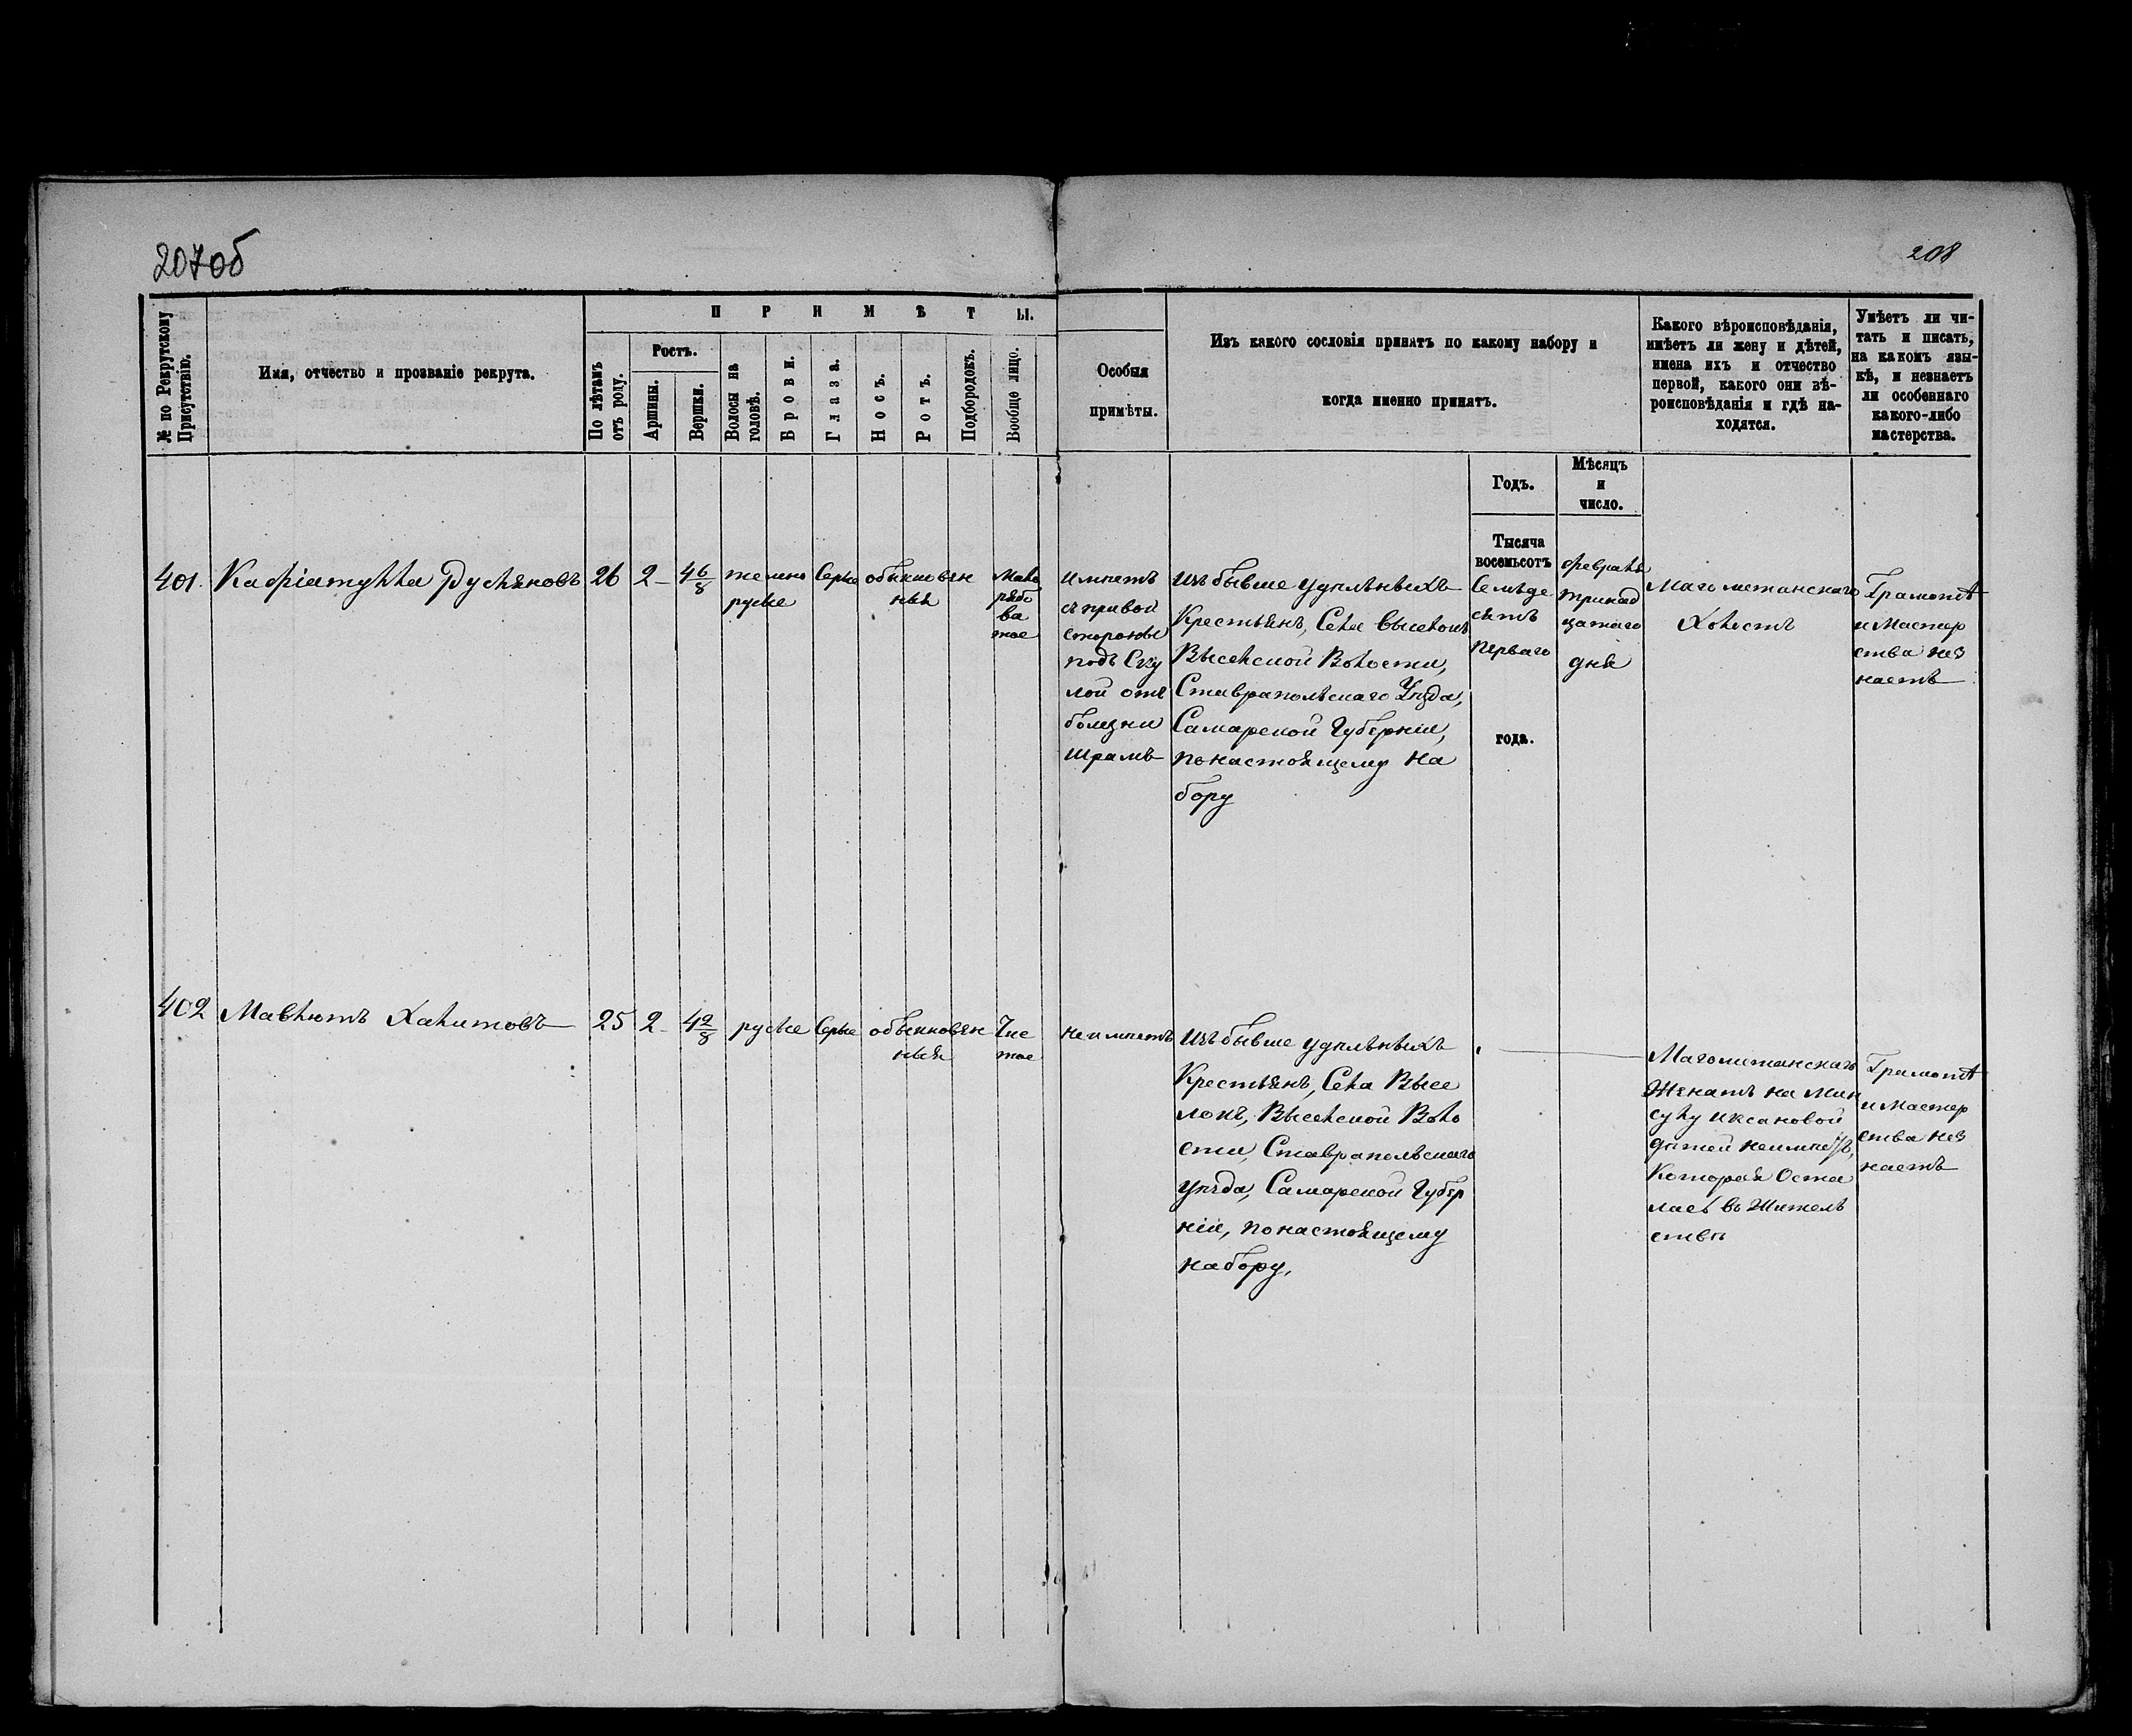 207об
208
№ по Рекрутскому Присутствію.
Имя, отчество и прозваніе рекрута.
ПРИМѢТЫ.
По лѣтамъ отъ роду.
Ростъ.
Аршины.
Вершки.
Волосы на головѣ.
Брови.
Глаза.
Носъ.
Ротъ.
Подбородокъ.
Вообще лицо.
Особыя
примѣты.
Изъ какого сословія принятъ по какому набору и
когда именно принятъ.
Какого вѣроисповѣданія,
имѣетъ ли жену и дѣтей,
имена ихъ и отчество
первой, какого они вѣ-
роисповѣданія и гдѣ на-
ходятся.
Умѣетъ ли чи-
тать и писать,
на какомъ язы-
кѣ, и незнаетъ
ли особеннаго
какого-либо
мастерства.
Годъ.
Мѣсяцъ
и
число.
401. Кафіатулла Руслановъ 26 2 - 4 6/8
темно
русые
Серые
обыкновен
ныя
Мало
рябо
ва
тое
имѣетъ
съ правой
стороны
подъ Ску
лой отъ
болезни
шрамъ
изъ бывше удѣльныхъ
Крестьянъ, Села Выселокъ
Высельской Волости,
Ставропольскаго Уѣзда,
Самарской Губерніи,
по настоящему на
бору
Тысяча
восемьсотъ
Семьде
сятъ
перваго
года.
февраля
тринад
цатаго
дня
Магометанскаго
Холостъ
Грамотѣ
и Мастер
ства нез
наетъ
402 Мавлютъ Халитовъ 25 2 - 4 2/8
русые
Серые
обыкновен
ныя
Чис
тое
неимѣетъ
изъ бывше удѣльныхъ
Крестьянъ, Села Высе
локъ, Высельской Воло
сти, Ставропольскаго
уѣзда, Самарской Губер
ніи, по настоящему
набору,
Магометанскаго
Женатъ на Мин
сулу Иксановой
дѣтей неимѣетъ,
Которая Оста
лась въ Жительѣ
ствѣ
Грамотѣ
и Мастер
ства нез
наетъ